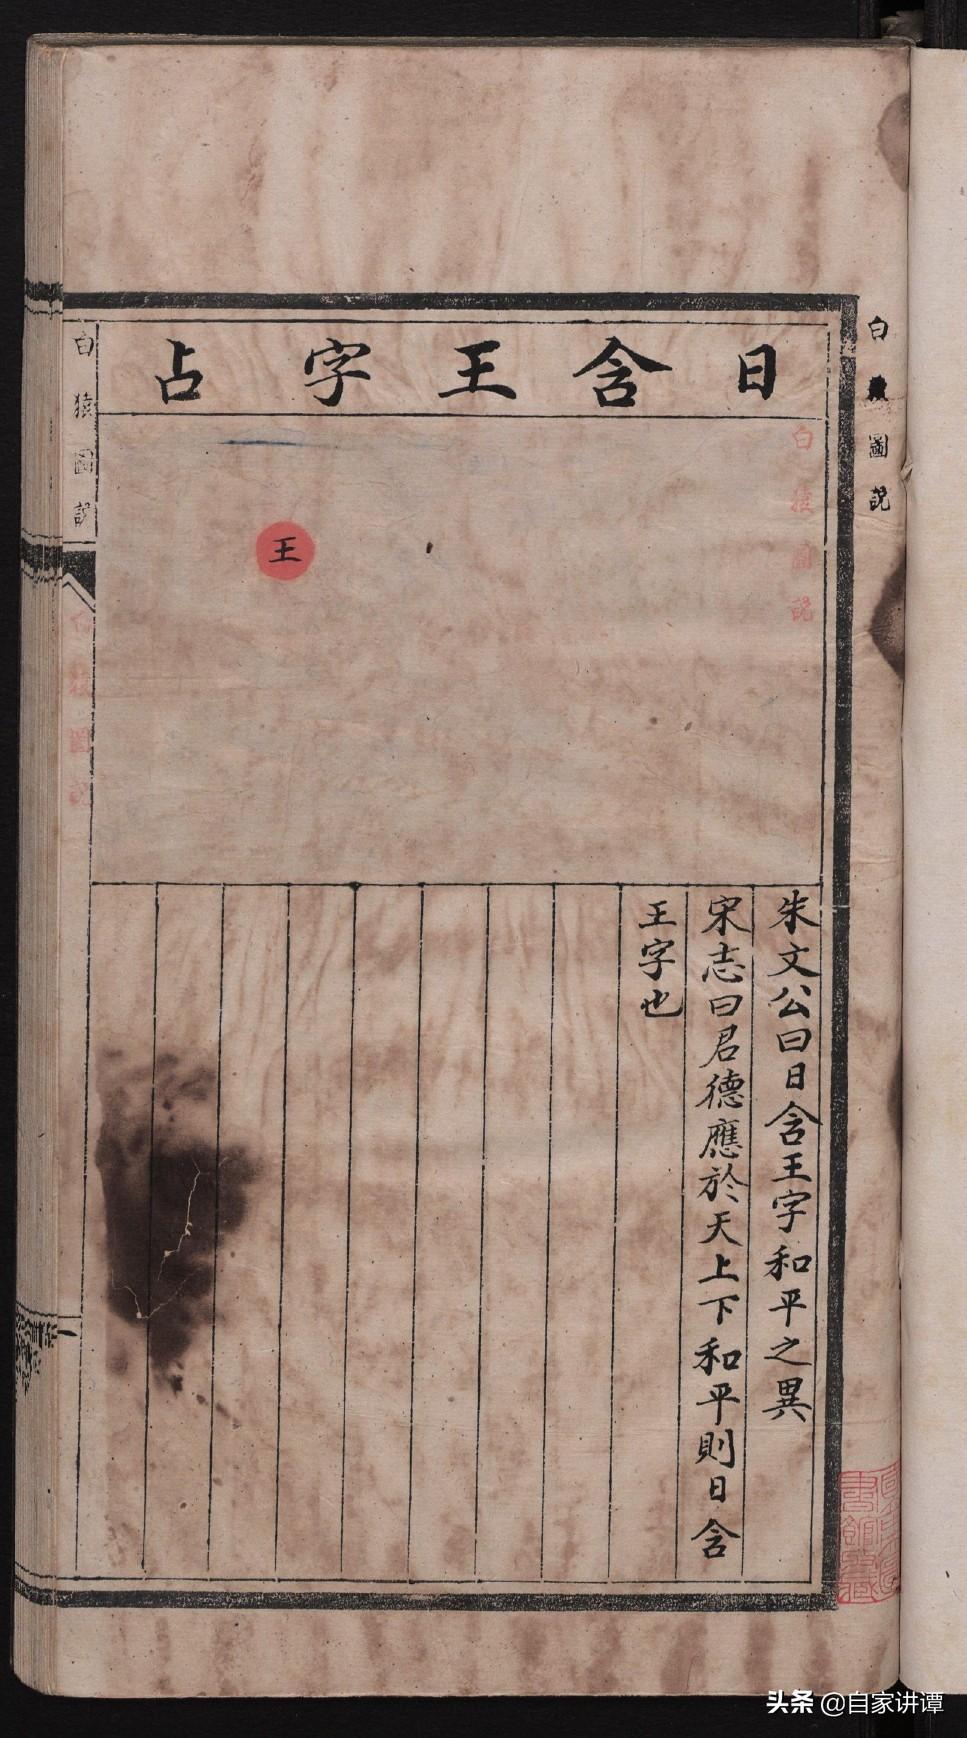 日含王字占
白猿圖説
王
朱文公曰日含王字和平之異
宋志曰君德應於天上下和平則日含
王字也
白猿圖説
白猿圖説
白猿圖説
头条 @自家讲谭